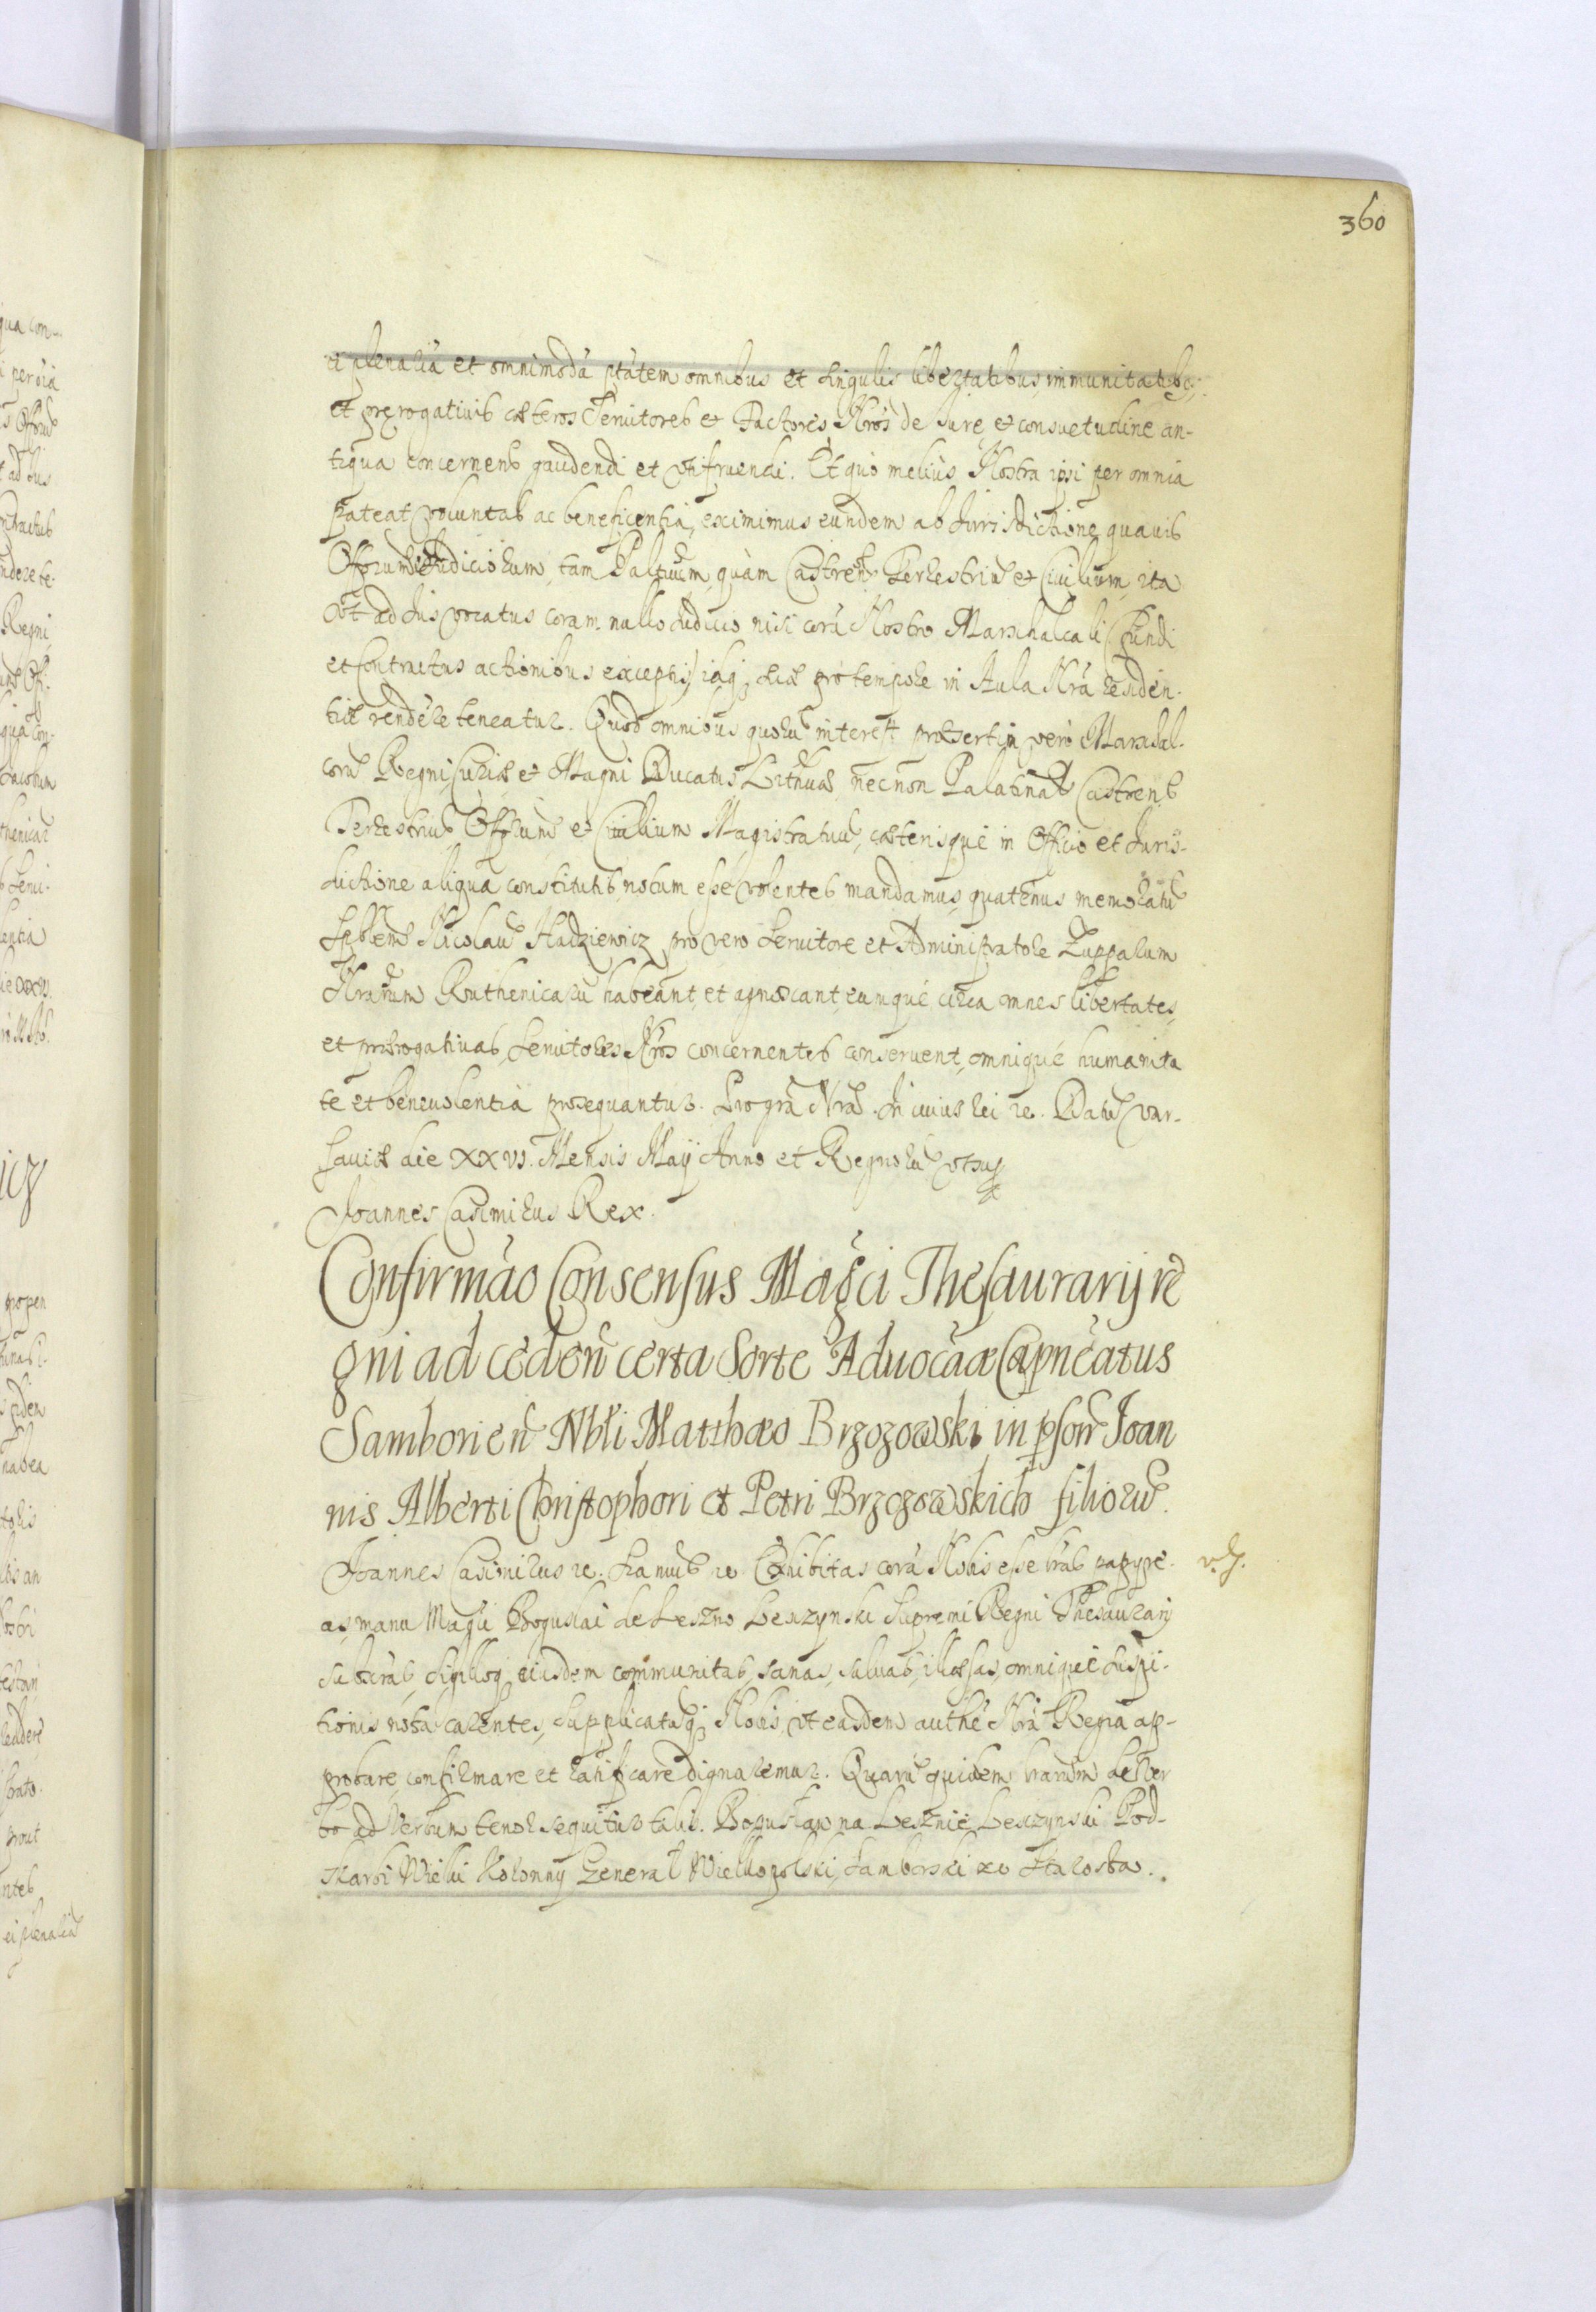 360
ei plenariã et omnimodã ptãtem omnibus et singulis libertatibus, immunitatibq;
et prerogativis cæteros Servitores et Factores Nros de Jure et consuetudine an-
tiqua concernent gaudendi et utifruendi. Et quo melius Nostra ipsi per omnia
pateat voluntas ac beneficentia, eximimus eundem ab Jurisdictione quavis
Offorum Judiciorum, tam Paltium, quàm Castren̄ Terrestriũ et Civilium, ita
vt ad Jus vocatus coram nullo Judicio nisi corã Nostro Marschalcali (fundi
et contractus actionibus exceptis) ibiq; sub pro tempore in Aula Nrã residen-
tiæ rendere teneatur. Quod omnibus quorũ interest, præsertim vero Marschal-
corũ Regni Curiæ et Magni Ducatus Lithuaæ necnon Palatinal Castren̄
Terrestriũ Offorum et Civilium Magistratuũ, cæterisque in Officio et Juris-
dictione aliqua constitutis, notum esse volentes mandamus, quatenus memoratũ
Nicolaũ Hadziewicz pro vero Servitore et Administratore Zupparum
Nrarum Ruthenicarũ habeant, et agnoscant, eumque circa omnes libertates,
et prærogativas, Servitores Nros concernentes conservent, omnique humanita
te et benevolentia prosequantur. Pro grã Nrã. In cuius rei re. Datũ Var-
saviæ die XXVI. Mensis Maÿ Anno et Regnorũ vt supra
Joannes Casimirus Rex.
Confirmão Consensus Magci Thesaurarij re
gni ad ceden̄ certa Sorte Advocãæ Capneatus
Samborien̄ Nbli Matthæo Brzozowski in pson̄ Joan
nis Alberti Christophori et Petri Brzozowskich filiorũ.
Joannes Casimirus re. Exhibitas corã Nobis esse lrãs papyre-
r. h.
as, manu Magci Boguslai de Leszno Leszczynski Supremi Regni Thesaurarij
subscrãs, Sigilloq; eiusdem communitas, sanas, salvas, illæsas, omnique suspi-
tionis nota carentes, supplicatuq; Nobis, vt easdem authe Nrã Regia ap-
probare, confirmare et ratificare dignaremur. Quarũ quidem lrarum de Ver
bo ad Verbum tenor sequitur talis. Bogusław na Lesznie Leszczynski Pod-
skarbi Wielki Koronny General Wielkopolski, Samborski Starosta.